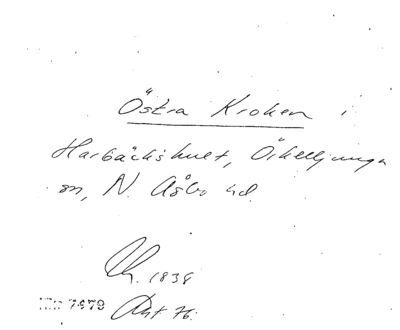 Östra Kroken i
Harbäckshult, Örkelljunga
sn, N. Åsbo hd.
1838
7479 76.